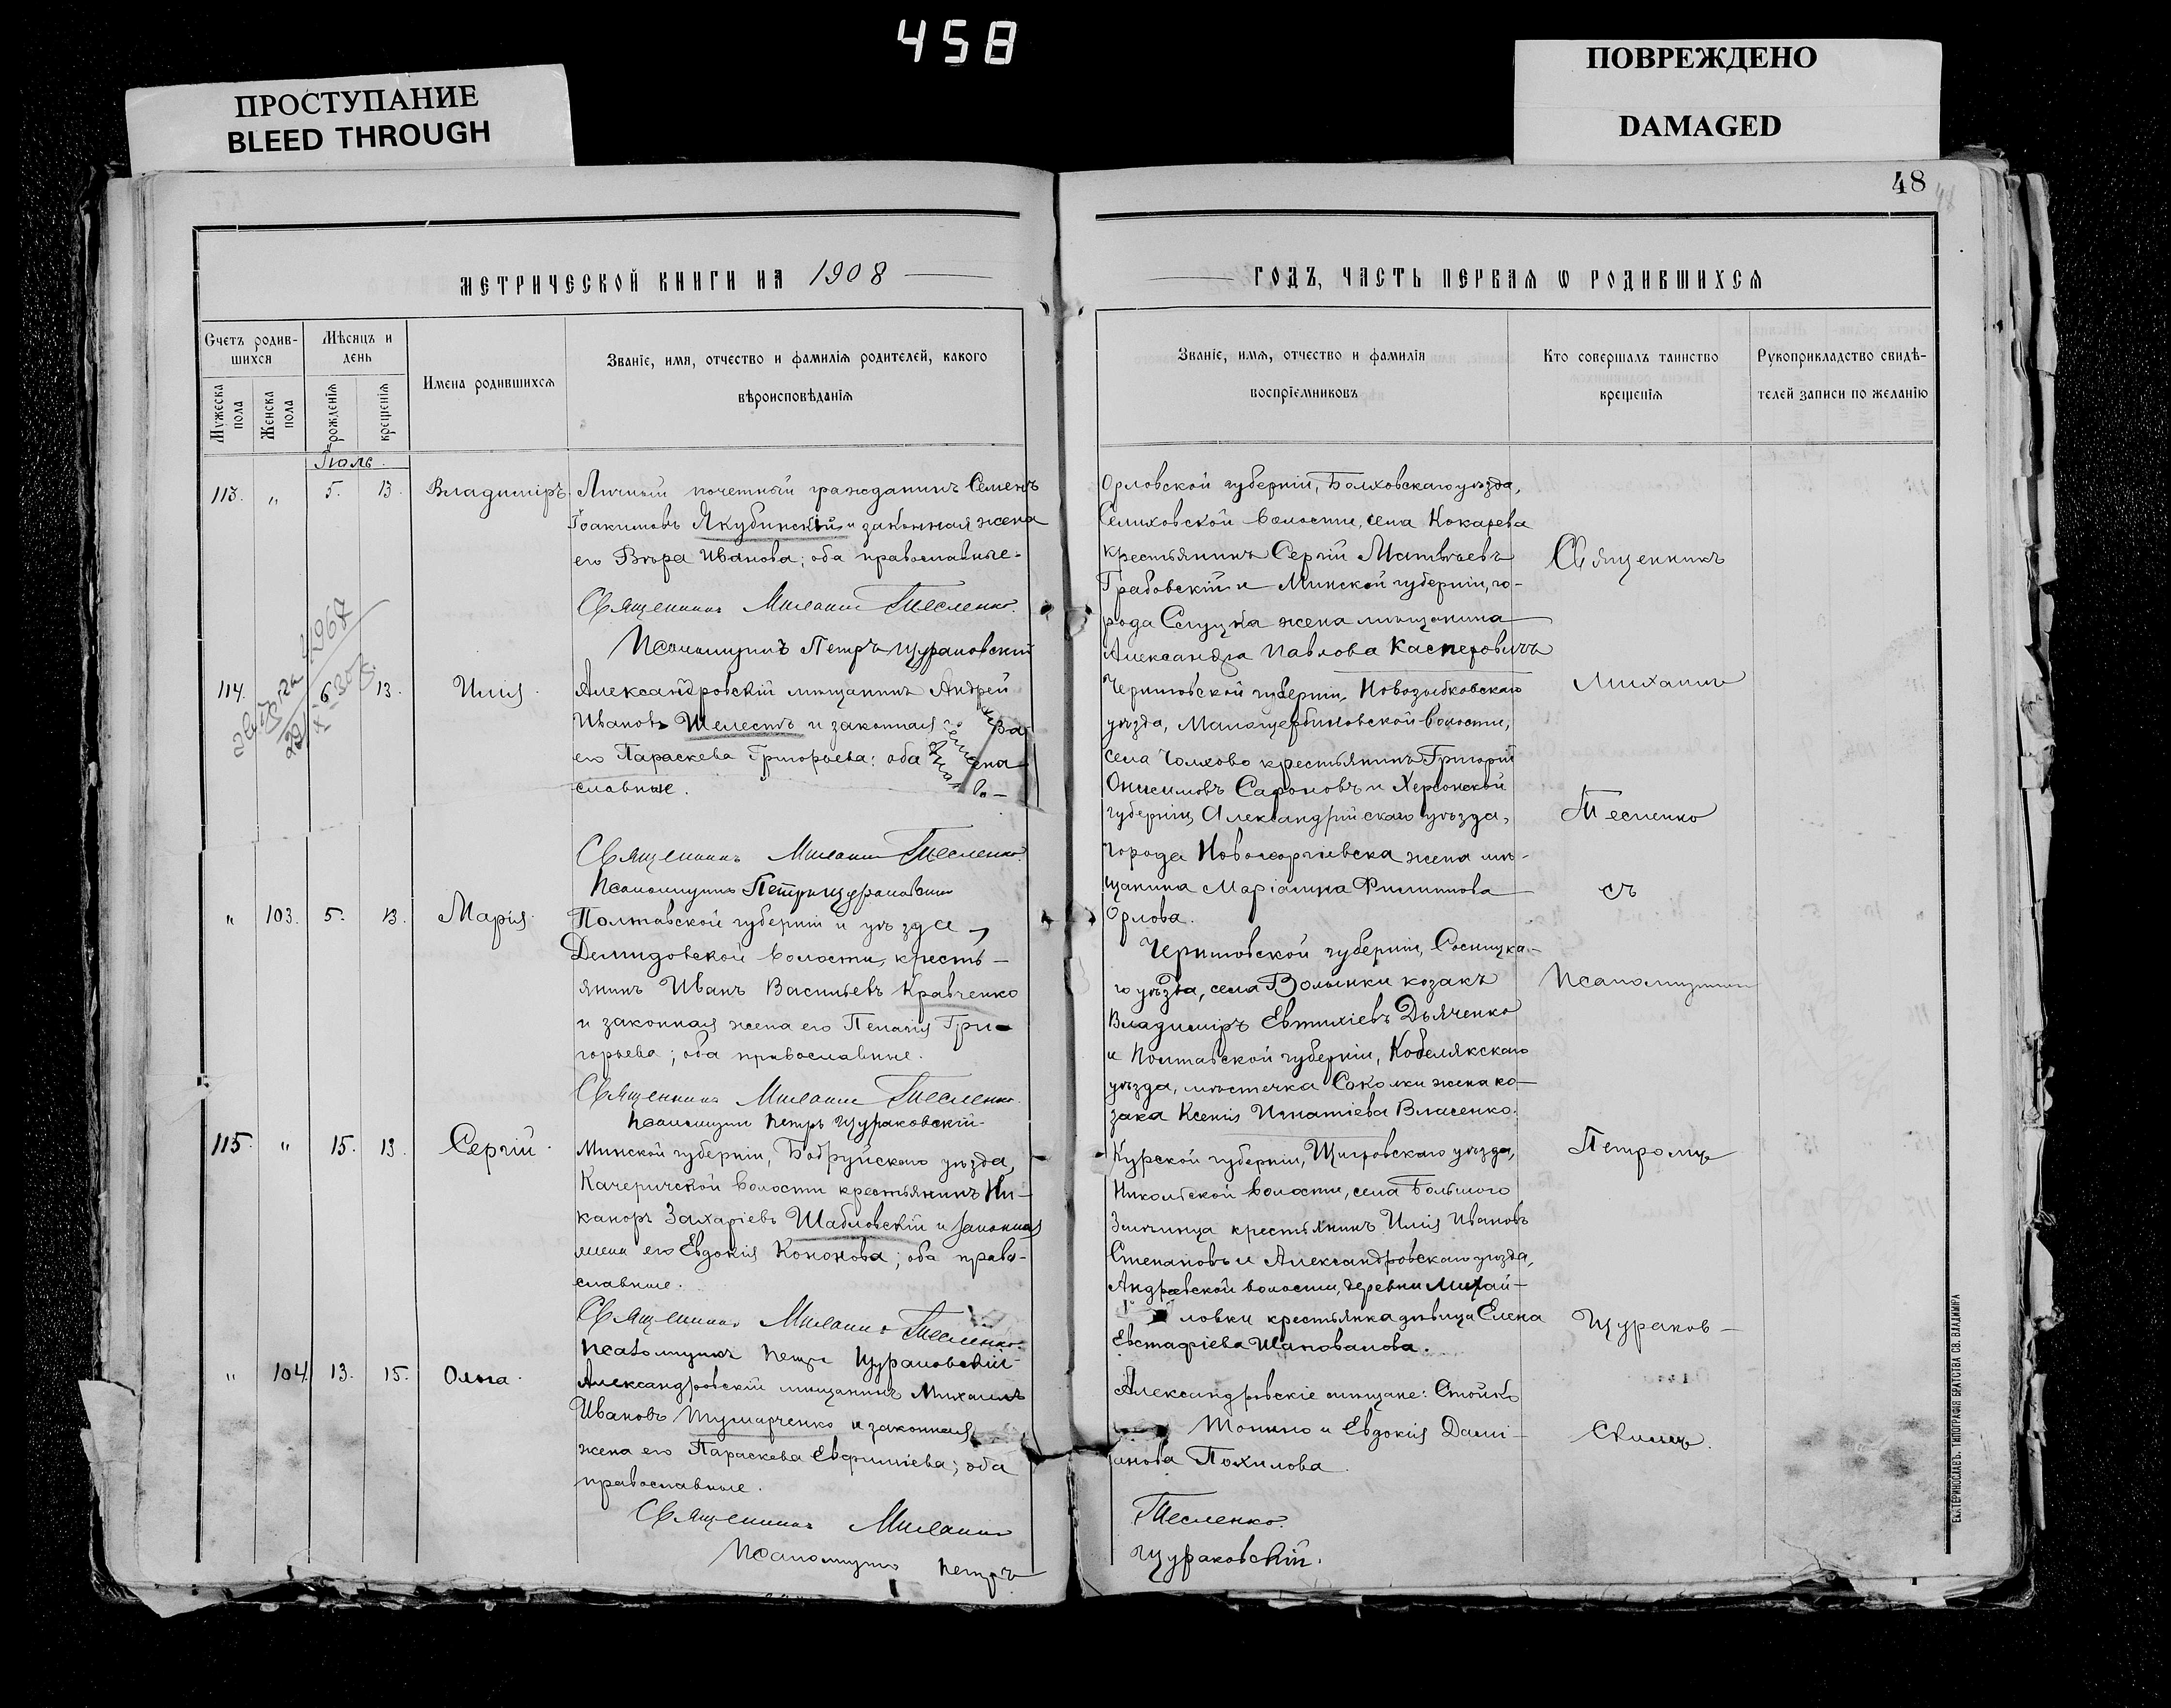 458
ПРОСТУПАНИЕ
BLEED THROUGH
ПОВРЕЖДЕНО
DAMAGED
48
МЕТРИЧЕСКОЙ КНИГИ НА 1908
Счетъ родив-
шихся
Мѣсяцъ и
день
Мужеска
пола
Женска
пола
рожденія
крещенія
Имена родившихся
Званіе, имя, отчество и фамилія родителей, какого
вѣроисповѣданія
Іюль.
113. " 5. 13. Владиміръ.
Личный почетный гражданинъ Семенъ
Іоакимовъ Якубинскій и законная жена
его Вѣра Иванова; оба православные.
Священникъ Михаилъ Тесленко.
Псаломщикъ Петръ Щураковскій
114. 6. 13. Илія.
1967
Александровскій мѣщанинъ Андрей
Ивановъ Шелестъ и законная
его Параскева Григорьева: оба
славные.
Священникъ Михаилъ Тесленко.
Псаломщикъ Петръ Щураковскій
" 103. 5. 13. Марія.
Полтавской губерніи и уѣзда,
Демидовской волости, кресть-
янинъ Иванъ Васильевъ Кравченко
и законная жена его Пелагія Гри-
горьева; оба православные.
Священникъ Михаилъ Тесленко.
Псаломщикъ Петръ Щураковскій.
115. " 15. 13. Сергій.
Минской губерніи, Бобруйскаго уѣзда,
Качеричской волости крестьянинъ Ни-
каноръ Захаріевъ Шабловскій и законная
жена его Евдокія Кононова; оба право-
славные.
Священникъ Михаилъ Тесленко.
Псаломщикъ Петръ Щураковскій
" 104. 13. 15. Ольга.
Александровскій мѣщанинъ Михаилъ
Ивановъ Тушарченко и законная
жена его Параскева Евфиміева; оба
православные.
Священникъ Михаилъ
Псаломщикъ Петръ
ГОДЪ, ЧАСТЬ ПЕРВАЯ Ѡ РОДИВШИХСЯ
Званіе, имя, отчество и фамилія
воспріемниковъ
Кто совершалъ таинство
крещенія
Рукоприкладство свидѣ-
телей записи по желанію
Орловской губерніи, Болховскаго уѣзда,
Селиховской волости, села Кокарева
крестьянинъ Сергій Матвѣевъ
Грабовскій и Минской губерніи, го-
рода Слуцка жена мѣщанина
Александра Павлова Касперовичъ
Черниговской губерніи, Новозыбковскаго
уѣзда, Малощербиновской волости,
села Чолхово крестьянинъ Григорій
Онисимовъ Сафоновъ и Херсонской
губерніи, Александрійскаго уѣзда,
города Новогеоргіевска жена мѣ-
щанина Маріамна Филиппова
Орлова.
Черниговской губерніи, Сосницка-
го уѣзда, села Волынки козакъ
Владиміръ Евтихіевъ Дьяченко
и Полтавской губерніи, Кобелякскаго
уѣзда, мѣстечка Соколки жена ко-
зака Ксенія Игнатіева Власенко.
Курской губерніи, Щигровскаго уѣзда,
Никольской волости, села Большого
Змѣинца крестьянинъ Илія Ивановъ
Степановъ и Александровскаго уѣзда,
Андреевской волости, деревни Михай-
ловки крестьянка дѣвица Елена
Евстафіева Шаповалова.
Александровскіе мѣщане: Стойко
Топило и Евдокія Дамі-
анова Похилова.
Тесленко.
Щураковскій.
Священникъ
Михаилъ
Тесленко
съ
Псаломщикомъ
Петромъ
Щураков-
скимъ.
ЕКАТЕРИНОСЛАВЪ. ТИПОГРАФІЯ БРАТСТВА СВ. ВЛАДИМІРА